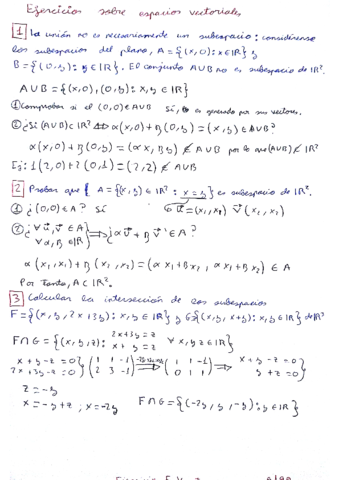 Ejercicios sobre espacios vectoriales
1 La unión no es necesariamente un subespacio: considérense
los subespacios del plano, A = {(x,0): x∈ℝ} y
B = {(0,y): y∈ℝ}. El conjunto A∪B no es subespacio de ℝ².
A∪B = {(x,0),(0,y): x,y ∈ℝ}
① Comprobar si el (0,0)∈A∪B Sí, es generado por sus vectores.
② ¿Si (A∪B)⊂ℝ² ⟺ α(x,0)+β(0,y)=(x,y)∈A∪B?
α(x,0)+β(0,y)=(αx,βy) ∉ A∪B por lo que (A∪B)⊄ℝ²
Ej: 1(2,0)+2(0,1)=(2,2)∉A∪B
2 Probar que A={(x,y)∈ℝ²: x=y} es subespacio de ℝ².
① ¿(0,0)∈A? Sí u⃗=(x₁,x₁) v⃗(x₂,x₂)
② ¿∀u⃗,v⃗∈A ∀α,β∈ℝ ⟹ ¿αu⃗+βv⃗∈A?
α(x₁,x₁)+β(x₂,x₂)=(αx₁+βx₂, αx₁+βx₂) ∈ A
Por tanto, A⊂ℝ².
3 Calcular la intersección de los subespacios
F={(x,y,2x+3y): x,y∈ℝ} y G={(x,y,x+y): x,y∈ℝ} de ℝ³
F∩G={(x,y,z): 2x+3y=z x+y=z ∀x,y,z∈ℝ}
x+y-z=0 (1 1 -1) (1 1 -1) x+y-z=0
2x+3y-z=0 (2 3 -1) (0 1 1) y+z=0
z=-y
x=-y+z; x=-2y F∩G={(-2y,y,-y): y∈ℝ}